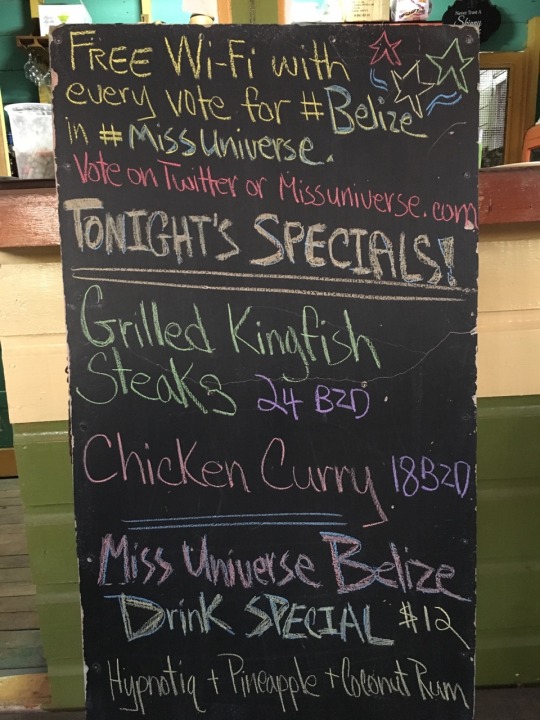 FREE Wi-Fi with
every vote for #Belize
in #MissUniverse.
Vote on Twitter or Missuniverse.com
TONIGHT'S SPECIALS!
Grilled Kingfish
Steaks 24 BZD
Chicken Curry 18BZD
Miss Universe Belize
Drink SPECIAL $12
Hypnotiq + Pineapple + Coconut Rum